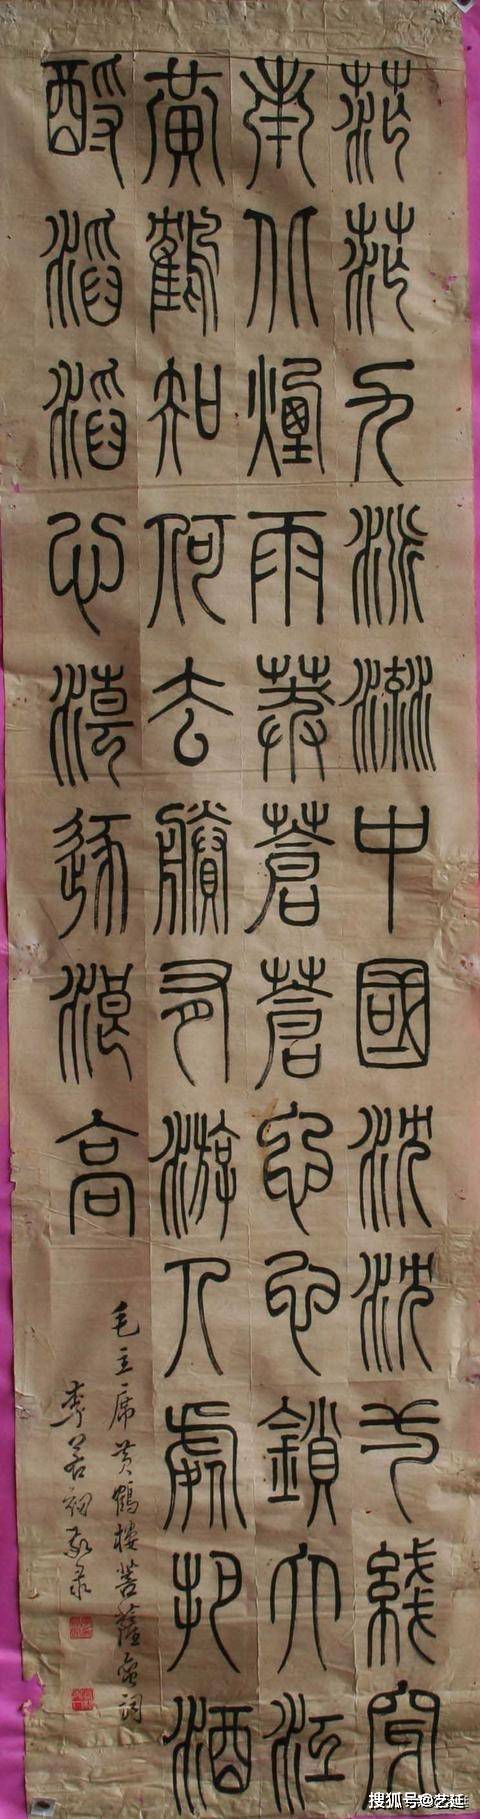 茫茫九派流中國沈沈弌線穿
南北煙雨莽蒼蒼龜蛇鎖大江
黃鶴知何去賸有游人處把酒
酹滔滔心潮逐浪高
毛主席黄鶴樓菩薩蛮詞
李若初敬录
搜狐号@艺延